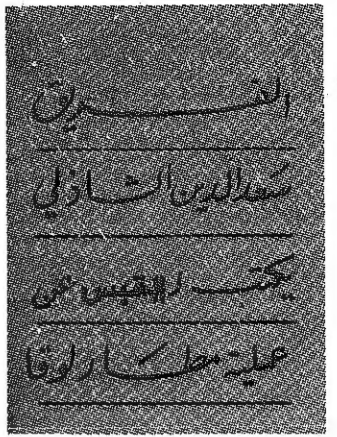 الفريق
سعد الدين الشاذلي
يكتب لـ القبس عن
عملية مطار لارنكا